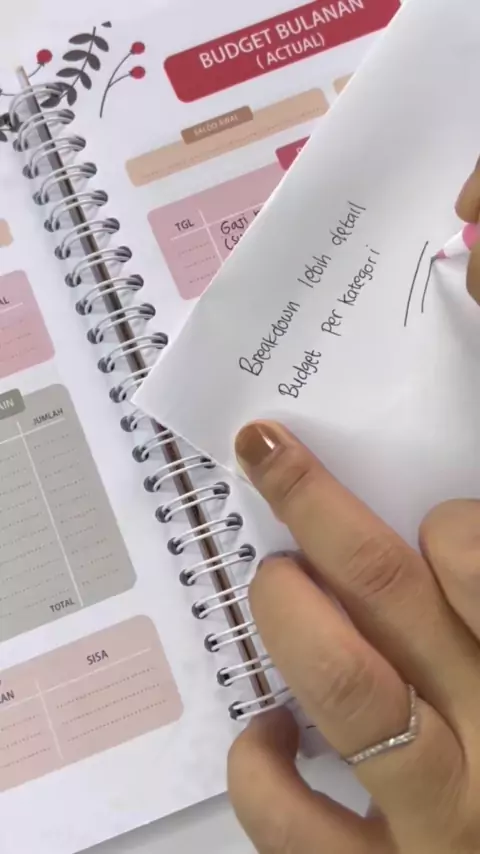 BUDGET BULANAN
( ACTUAL)
SALDO AWAL
TGL
Gaji
Breakdown lebih detail
Budget per kategori
JUMLAH
TOTAL
SISA